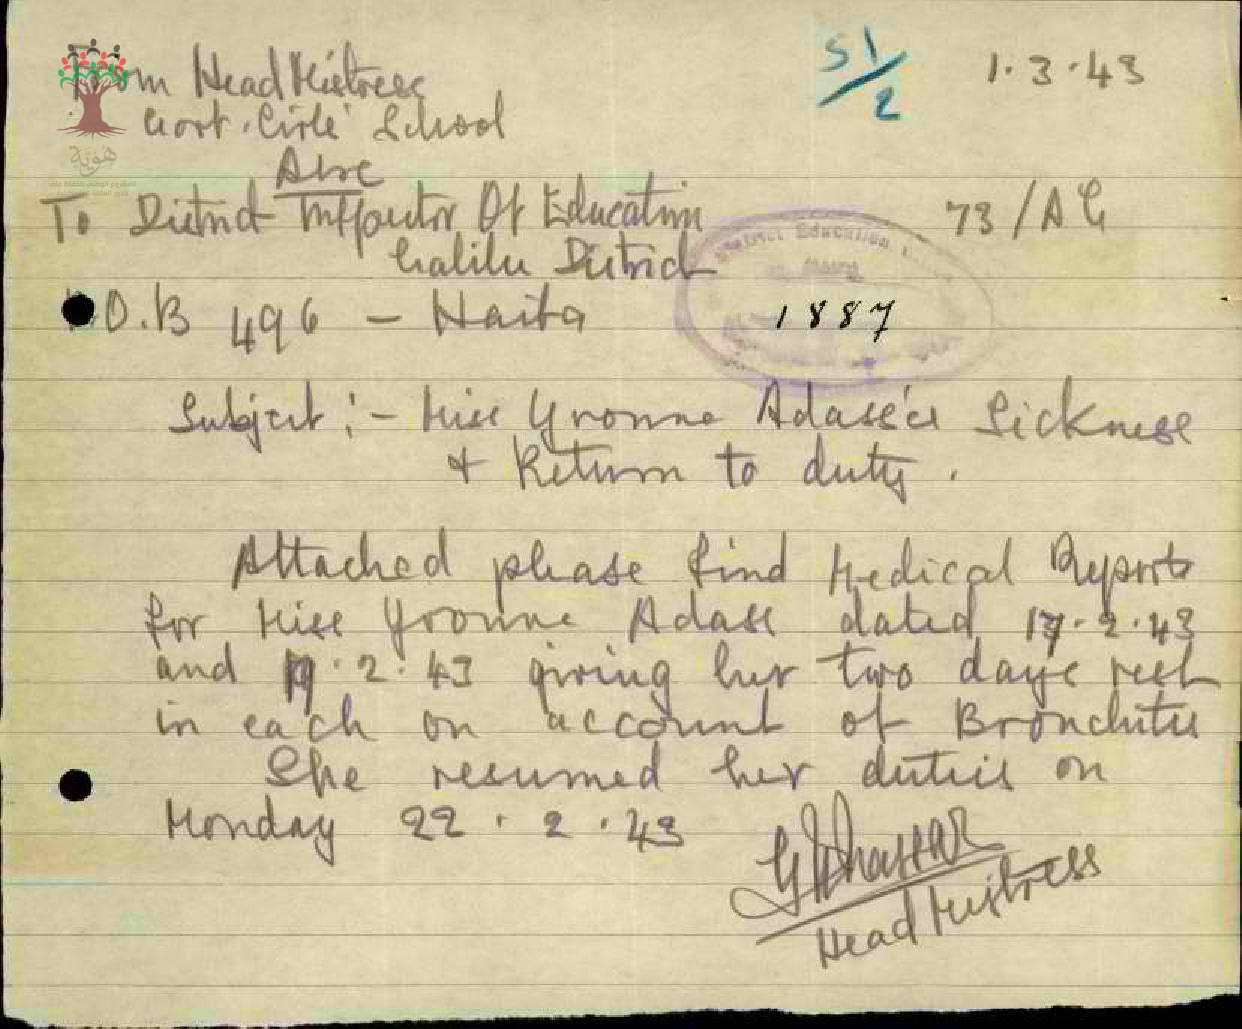 From Head Mistress
Govt. Girls' School
Acre
To District Inspector Of Education
Galilee District
P.O.B 496 - Haifa
51/2
1.3.43
73/AG
District Education
1887
Subject :- Miss Yvonne Adass's Sickness
& Return to duty.
Attached please find Medical Reports
for Miss Yvonne Adass dated 17.2.43
and 19.2.43 giving her two days rest
in each on account of Bronchitis
She resumed her duties on
Monday 22.2.43
Head Mistress
هوية